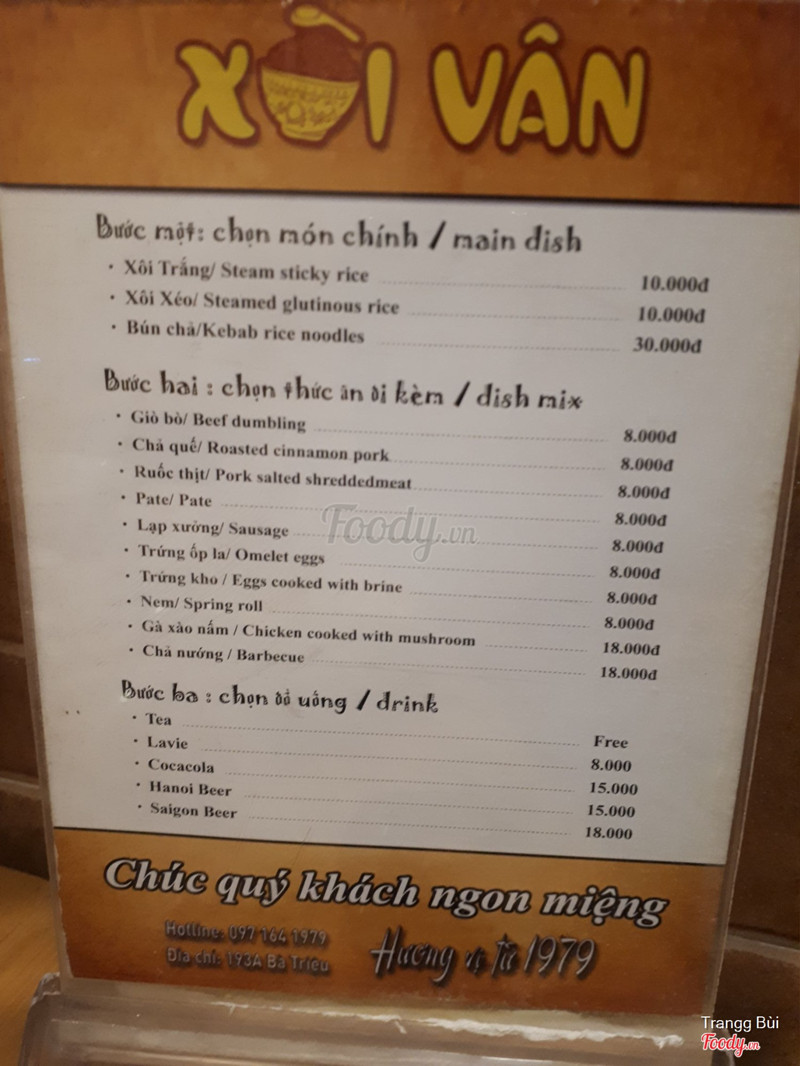 XÔI VÂN
Bước một: chọn món chính / main dish
· Xôi Trắng/ Steam sticky rice 10.000đ
· Xôi Xéo/ Steamed glutinous rice 10.000đ
· Bún chả/Kebab rice noodles 30.000đ
Bước hai : chọn thức ăn đi kèm / dish mix
· Giò bò/ Beef dumbling 8.000đ
· Chả quế/ Roasted cinnamon pork 8.000đ
· Ruốc thịt/ Pork salted shreddedmeat 8.000đ
· Pate/ Pate 8.000đ
· Lạp xưởng/ Sausage 8.000đ
· Trứng ốp la/ Omelet eggs 8.000đ
· Trứng kho / Eggs cooked with brine 8.000đ
· Nem/ Spring roll 8.000đ
· Gà xào nấm / Chicken cooked with mushroom 18.000đ
· Chả nướng / Barbecue 18.000đ
Bước ba : chọn đồ uống / drink
· Tea Free
· Lavie 8.000
· Cocacola 15.000
· Hanoi Beer 15.000
· Saigon Beer 18.000
Chúc quý khách ngon miệng
Hotline: 097 164 1979
Địa chỉ: 193A Bà Triệu
Hương vị từ 1979
Foody.vn
Trangg Bùi
Foody.vn